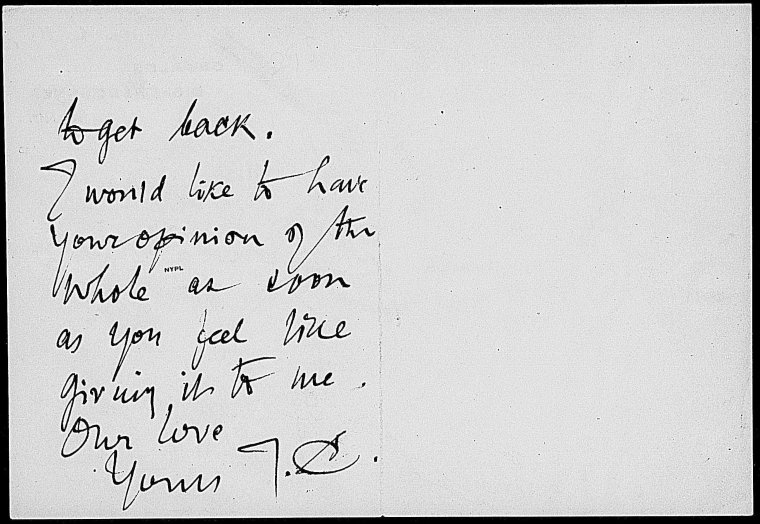 to get back.
I would like to have
your opinion of the
whole as soon
NYPL
as you feel like
giving it to me.
Our love
Yours J.C.